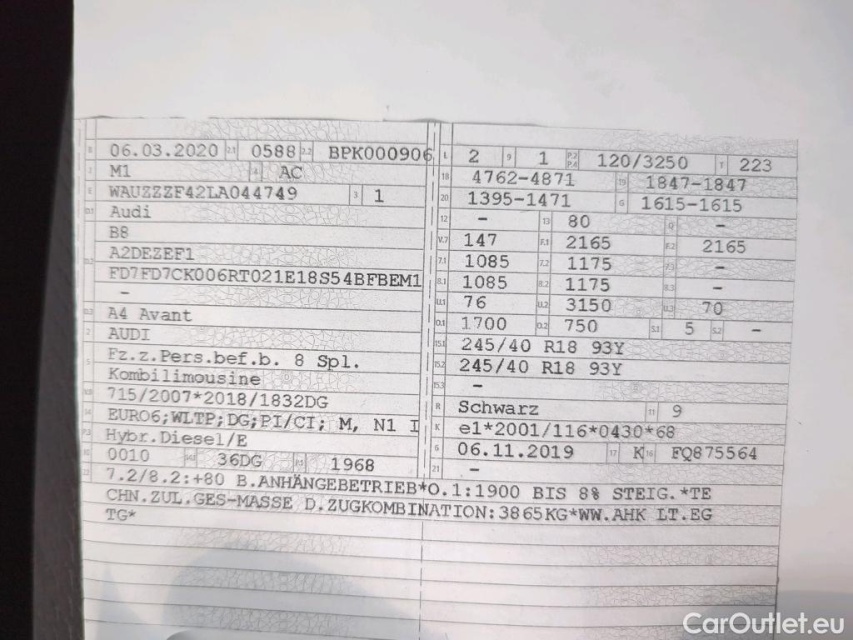 B 06.03.2020 2.1 0588 2.2 BPK000906
J M1 4 AC
E WAUZZZF42LA044749 3 1
D.1 Audi
B8
D.2 A2DEZEF1
FD7FD7CK006RT021E18S54BFBEM1
-
D.3 A4 Avant
2 AUDI
5 Fz.z.Pers.bef.b. 8 Spl.
Kombilimousine
V.9 715/2007*2018/1832DG
14 EURO6;WLTP;DG;PI/CI; M, N1 I
P.3 Hybr.Diesel/E
10 0010 14.1 36DG P.1 1968
L 2 9 1 P.2 P.4 120/3250 T 223
18 4762-4871 19 1847-1847
20 1395-1471 G 1615-1615
12 - 13 80 Q -
V.7 147 F.1 2165 F.2 2165
7.1 1085 7.2 1175 7.3 -
8.1 1085 8.2 1175 8.3 -
U.1 76 U.2 3150 U.3 70
O.1 1700 O.2 750 S.1 5 S.2 -
15.1 245/40 R18 93Y
15.2 245/40 R18 93Y
15.3 -
R Schwarz 11 9
K e1*2001/116*0430*68
6 06.11.2019 17 K 16 FQ875564
21 -
22 7.2/8.2:+80 B.ANHÄNGEBETRIEB*O.1:1900 BIS 8% STEIG.*TE
CHN.ZUL.GES-MASSE D.ZUGKOMBINATION:3865KG*WW.AHK LT.EG
TG*
CarOutlet.eu